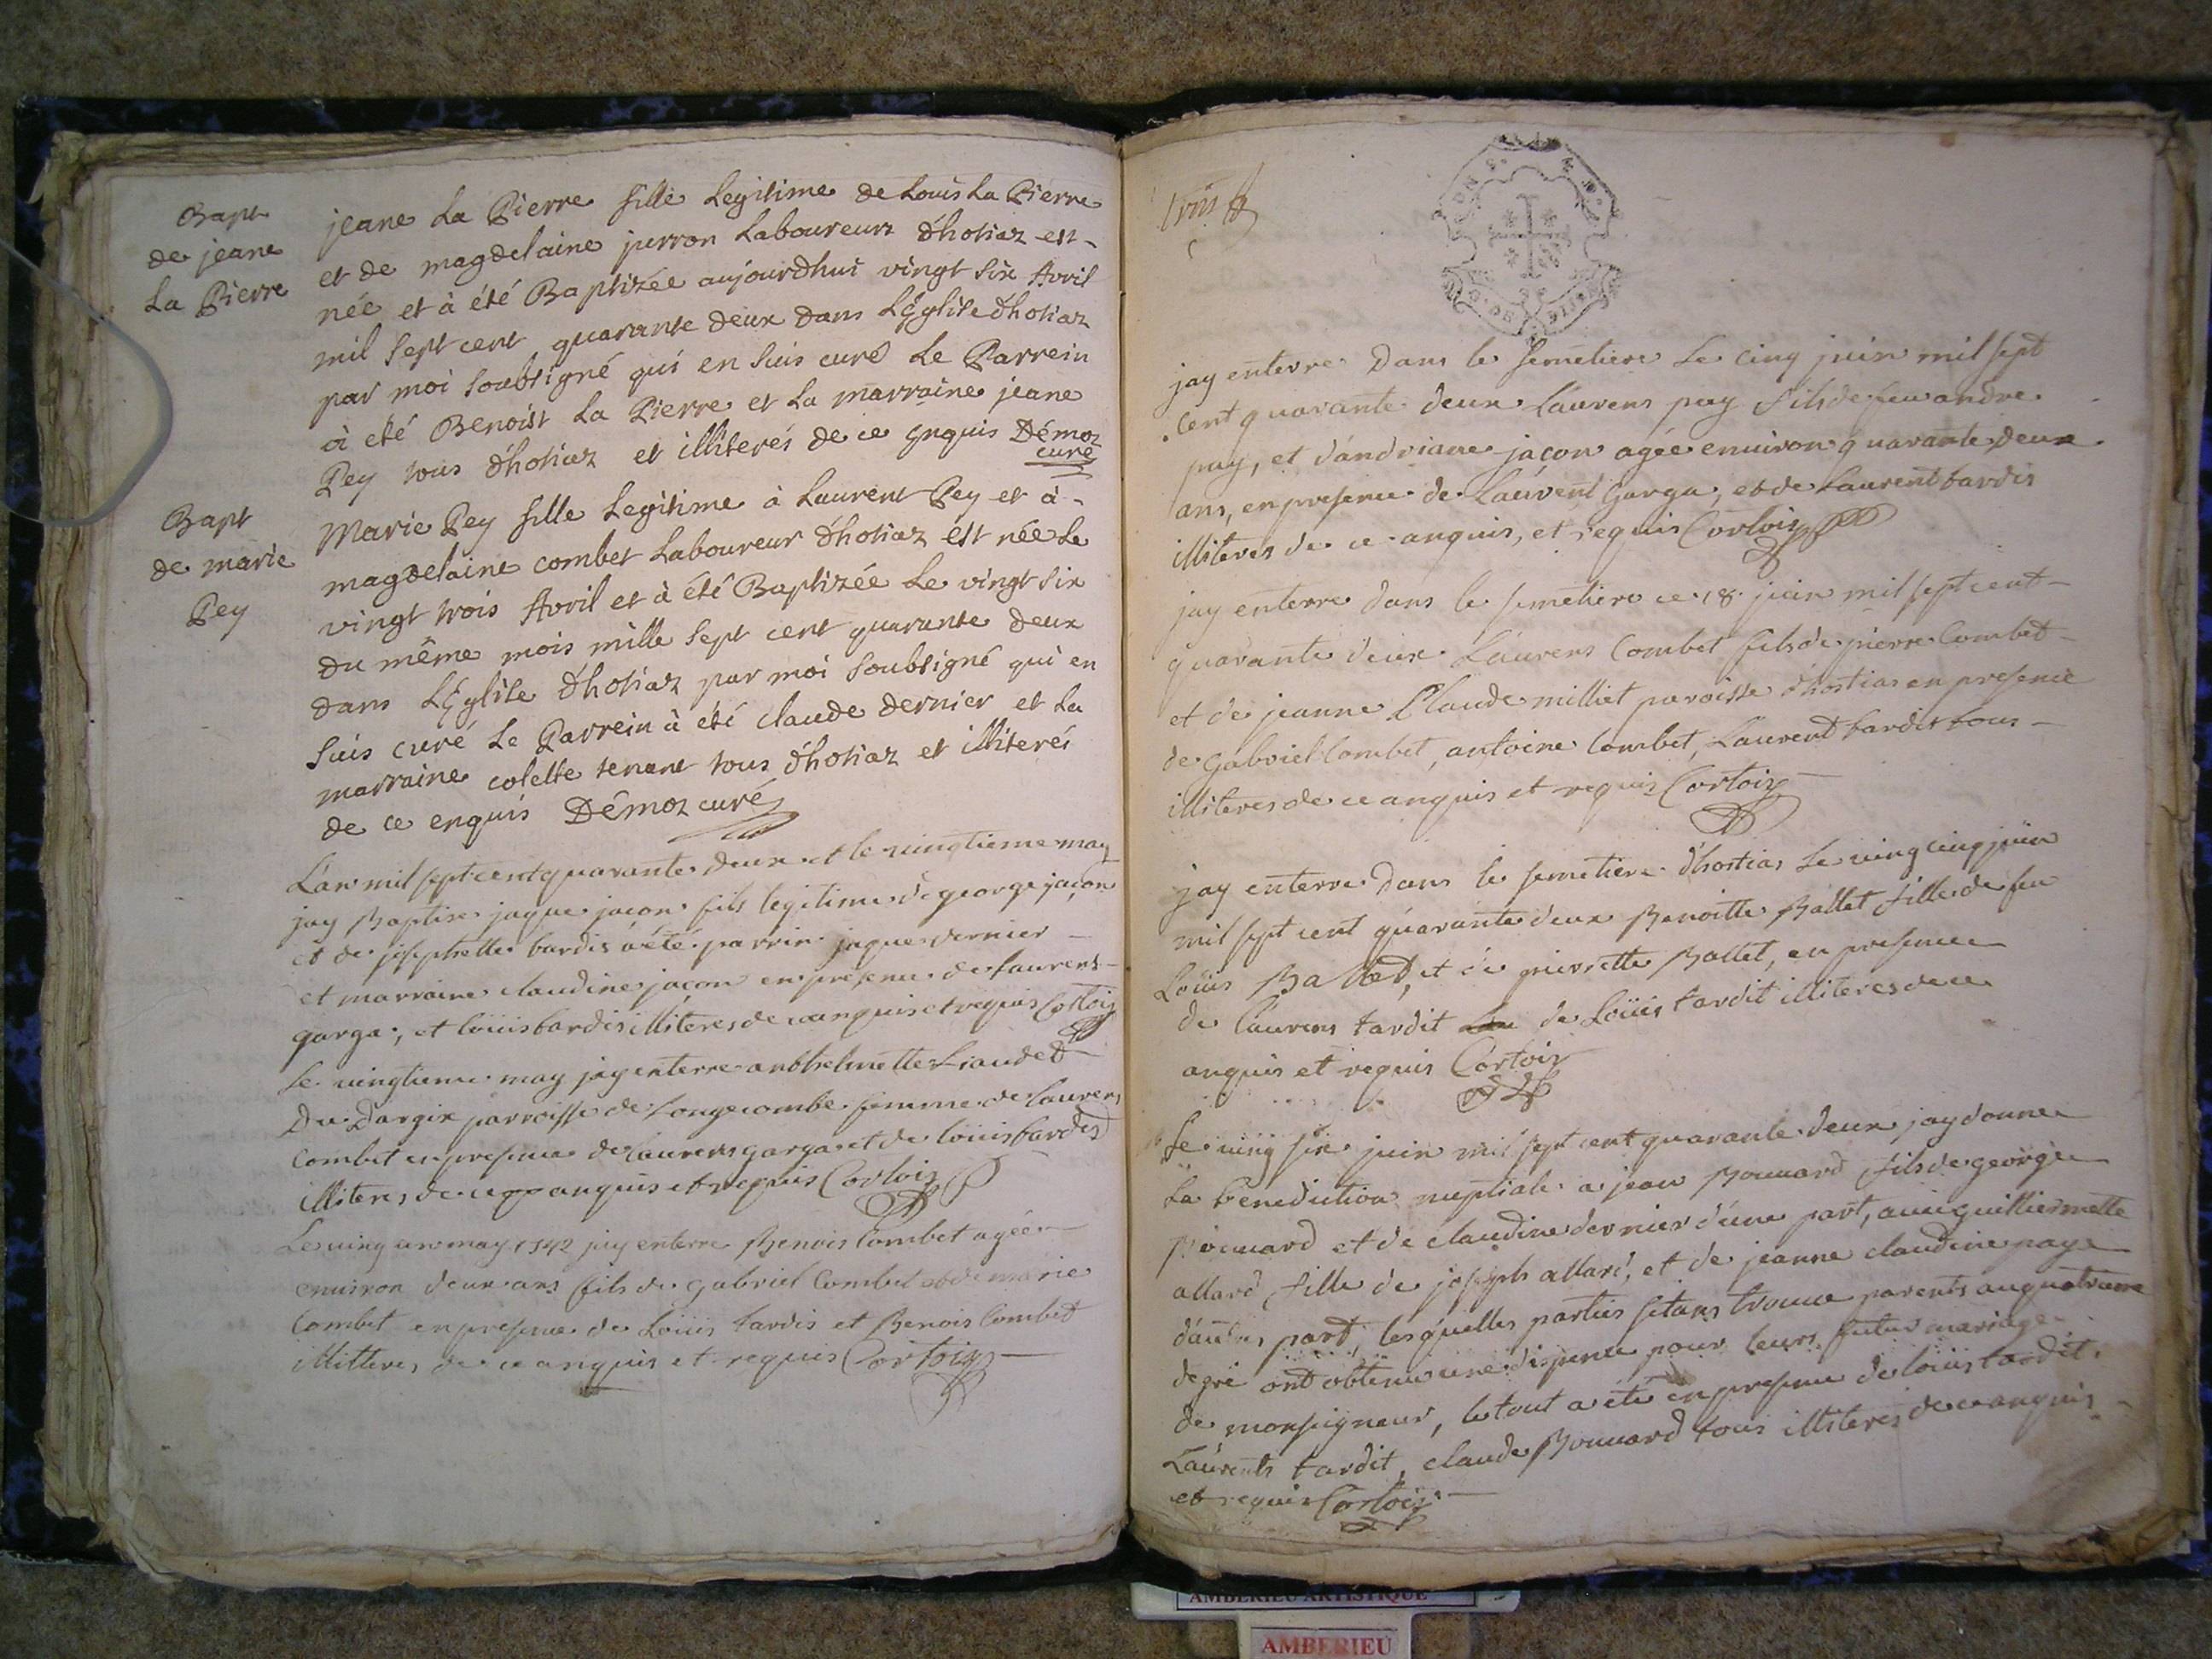 Bapt
de jeane
La Pierre
jeane La Pierre fille Legitime de Louis La Pierre
et de magdelaine jurron Laboureurs d'hotiaz est
née et à été Baptizée aujourdhui vingt six Avril
mil sept cent quarante deux dans L'Eglise d'hotiaz
par moi soubsigné qui en suis curé Le Parrein
à eté Benoist La Pierre et La marraine jeane
Pey tous d'hotiaz et illiterés de ce enquis Démoz
curé
Bapt
de marie
Pey
Marie Pey fille Legitime à Laurent Pey et à
magdelaine combet Laboureur d'hotiaz est née Le
vingt trois Avril et à été Baptizée Le vingt six
du même mois mille sept cent quarante deux
dans L'Eglise d'hotiaz par moi soubsigné qui en
suis curé Le Parrein à été claude dernier et La
marraine colette tenant tous d'hotiaz et illiterés
de ce enquis Démoz curé
L'an mil sept cent quarante deux et le vingtieme may
jay Baptise jaque jacon fils legitime de george jaçon
et de josephette bardis a été parrin jaque dernier
et marraine claudine jacon en presence de laurens
garga, et loüis bardis illiteres de ce anquis et requis Cortois
Le vingtieme may jay enterre anthelmette Liaudet
Du Dargix parroisse de Longecombe femme de laurens
Combet en presence de laurens garga et de loüis bardis
illiteres de ce anquis et requis Cortois
Le ving un may 1742 jay enterre Benois Combet agée
environ deux ans fils de gabriel Combet et de marie
Combet en presence de Loüis tardis et Benois Combet
illitteres de ce anquis et requis Cortois
trois
jay enterre Dans le semetiere Le cinq juin mil sept
cent quarante deux Laurens pay fils de feu andre
pay, et d'andriane jaçon agée environ quarante deux
ans, en presence de Laurent Garga, et de Laurent tardis
illiteres de ce anquis, et requis Cortois
jay enterre dans le semetiere ce 18 juin mil sept cent
quarante deux Laurens Combet fils de pierre Combet
et de jeanne Claude milliet paroisse d'hostias en presence
de gabriel Combet, antoine Combet, Laurent tardis tous
illiteres de ce anquis et requis Cortois
jay enterre dans le semetiere d'hostias le ving cinq juin
mil sept cent quarante deux Benoitte Ballet fille de feu
Loüis Ballet, et de pierrette Ballet, en presence
de laurens tardit de Loüis tardit illiteres de ce
anquis et requis Cortois
Le ving six juin mil sept cent quarante deux jay donne
La benediction nuptiale a jean Bouuard fils de george
Bouuard et de claudine dernier d'une part, auec guilliermette
allard fille de joseph allard, et de jeanne claudine paye
d'autre part, lesquelles parties setans trouue parents au quatrieme
degré ont obtenu une dispence pour leurs futur mariage
de monseigneur, le tout a été en presence de loüis tardit
Laurents tardit, claude Bouuard tous illiteres de ce anquis
et requis Cortois
AMBERIEU ARTISTIQUE
AMBERIEU